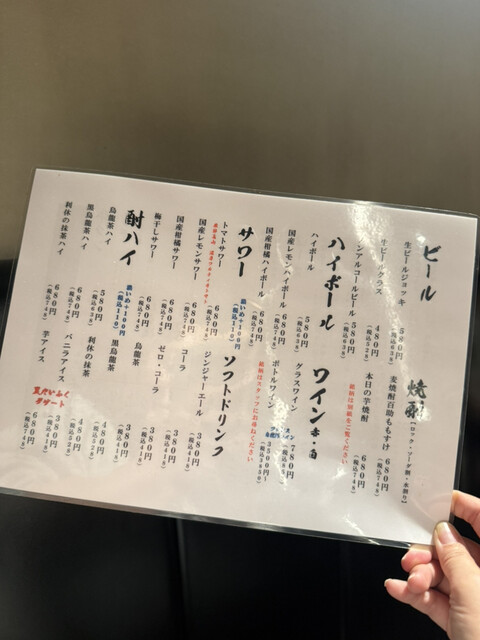 ビール
生ビールジョッキ 580円(税込638)
生ビールグラス 480円(税込528)
ノンアルコールビール 580円(税込638)
ハイボール
ハイボール 580円(税込638)
国産レモンハイボール 680円(税込748)
国産柑橘ハイボール 680円(税込748)
サワー
濃いめ+100円(税込110)
トマトサワー 680円(税込748)
国産レモンサワー 680円(税込748)
国産柑橘サワー 680円(税込748)
梅干しサワー 680円(税込748)
酎ハイ
濃いめ+100円(税込110)
烏龍茶ハイ 580円(税込638)
黒烏龍茶ハイ 680円(税込748)
利休の抹茶ハイ 680円(税込748)
焼酎【ロック・ソーダ割・水割り】
麦焼酎百助ももすけ 680円(税込748)
本日の芋焼酎 680円(税込748)
銘柄は別紙をご覧ください
ワイン 赤・白
グラスワイン 780円
ボトルワイン 3500円〜(税込3850)
銘柄はスタッフにお尋ねください
ソフトドリンク
ジンジャーエール 380円(税込418)
コーラ 380円(税込418)
ゼロ・コーラ 380円(税込418)
烏龍茶 380円(税込418)
黒烏龍茶 480円(税込528)
利休の抹茶 480円(税込528)
バニラアイス 480円
芋アイス 680円(税込748)